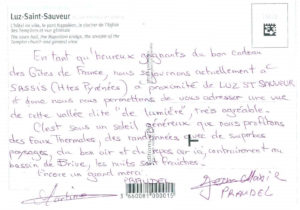 Luz-Saint-Sauveur
L'hôtel de ville, le pont Napoléon, le clocher de l'église
des Templiers et vue générale
The town hall, the Napoléon bridge, the steeple of the
Templar church and general view
En tant qu'heureux gagnants du bon cadeau
des Gîtes de France, nous séjournons actuellement à
SASSIS (Htes Pyrénées) à proximité de LUZ ST SAUVEUR
et donc nous nous permettons de vous adresser une vue
de cette vallée dite "de Lumière", très agréable.
C'est sous un soleil généreux que nous profitons
des eaux thermales, des randonnées avec de superbes
paysages, du bon air et du repos car ici, contrairement au
bassin de Brive, les nuits sont fraîches.
Encore un grand merci.
PRANDEL
Martine
Jean-Marie
PRANDEL
3 660081 000015